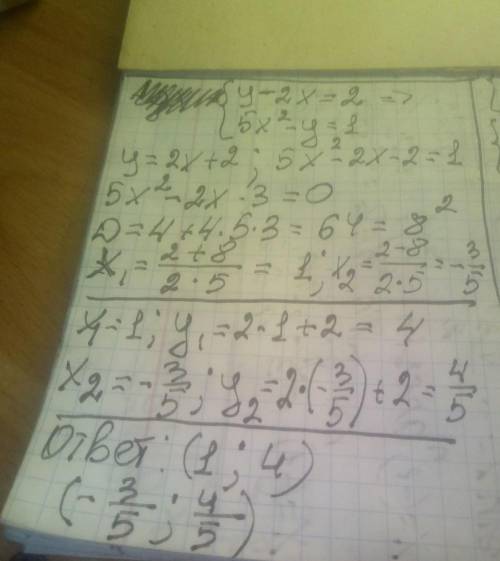 { y-2x=2 =>
5x²-y=1
y=2x+2; 5x²-2x-2=1
5x²-2x-3=0
D=4+4·5·3=64=8²
x₁=(2+8)/(2·5)=1; x₂=(2-8)/(2·5)=-3/5
x₁=1; y₁=2·1+2=4
x₂=-3/5; y₂=2·(-3/5)+2=4/5
Ответ: (1; 4)
(-3/5; 4/5).